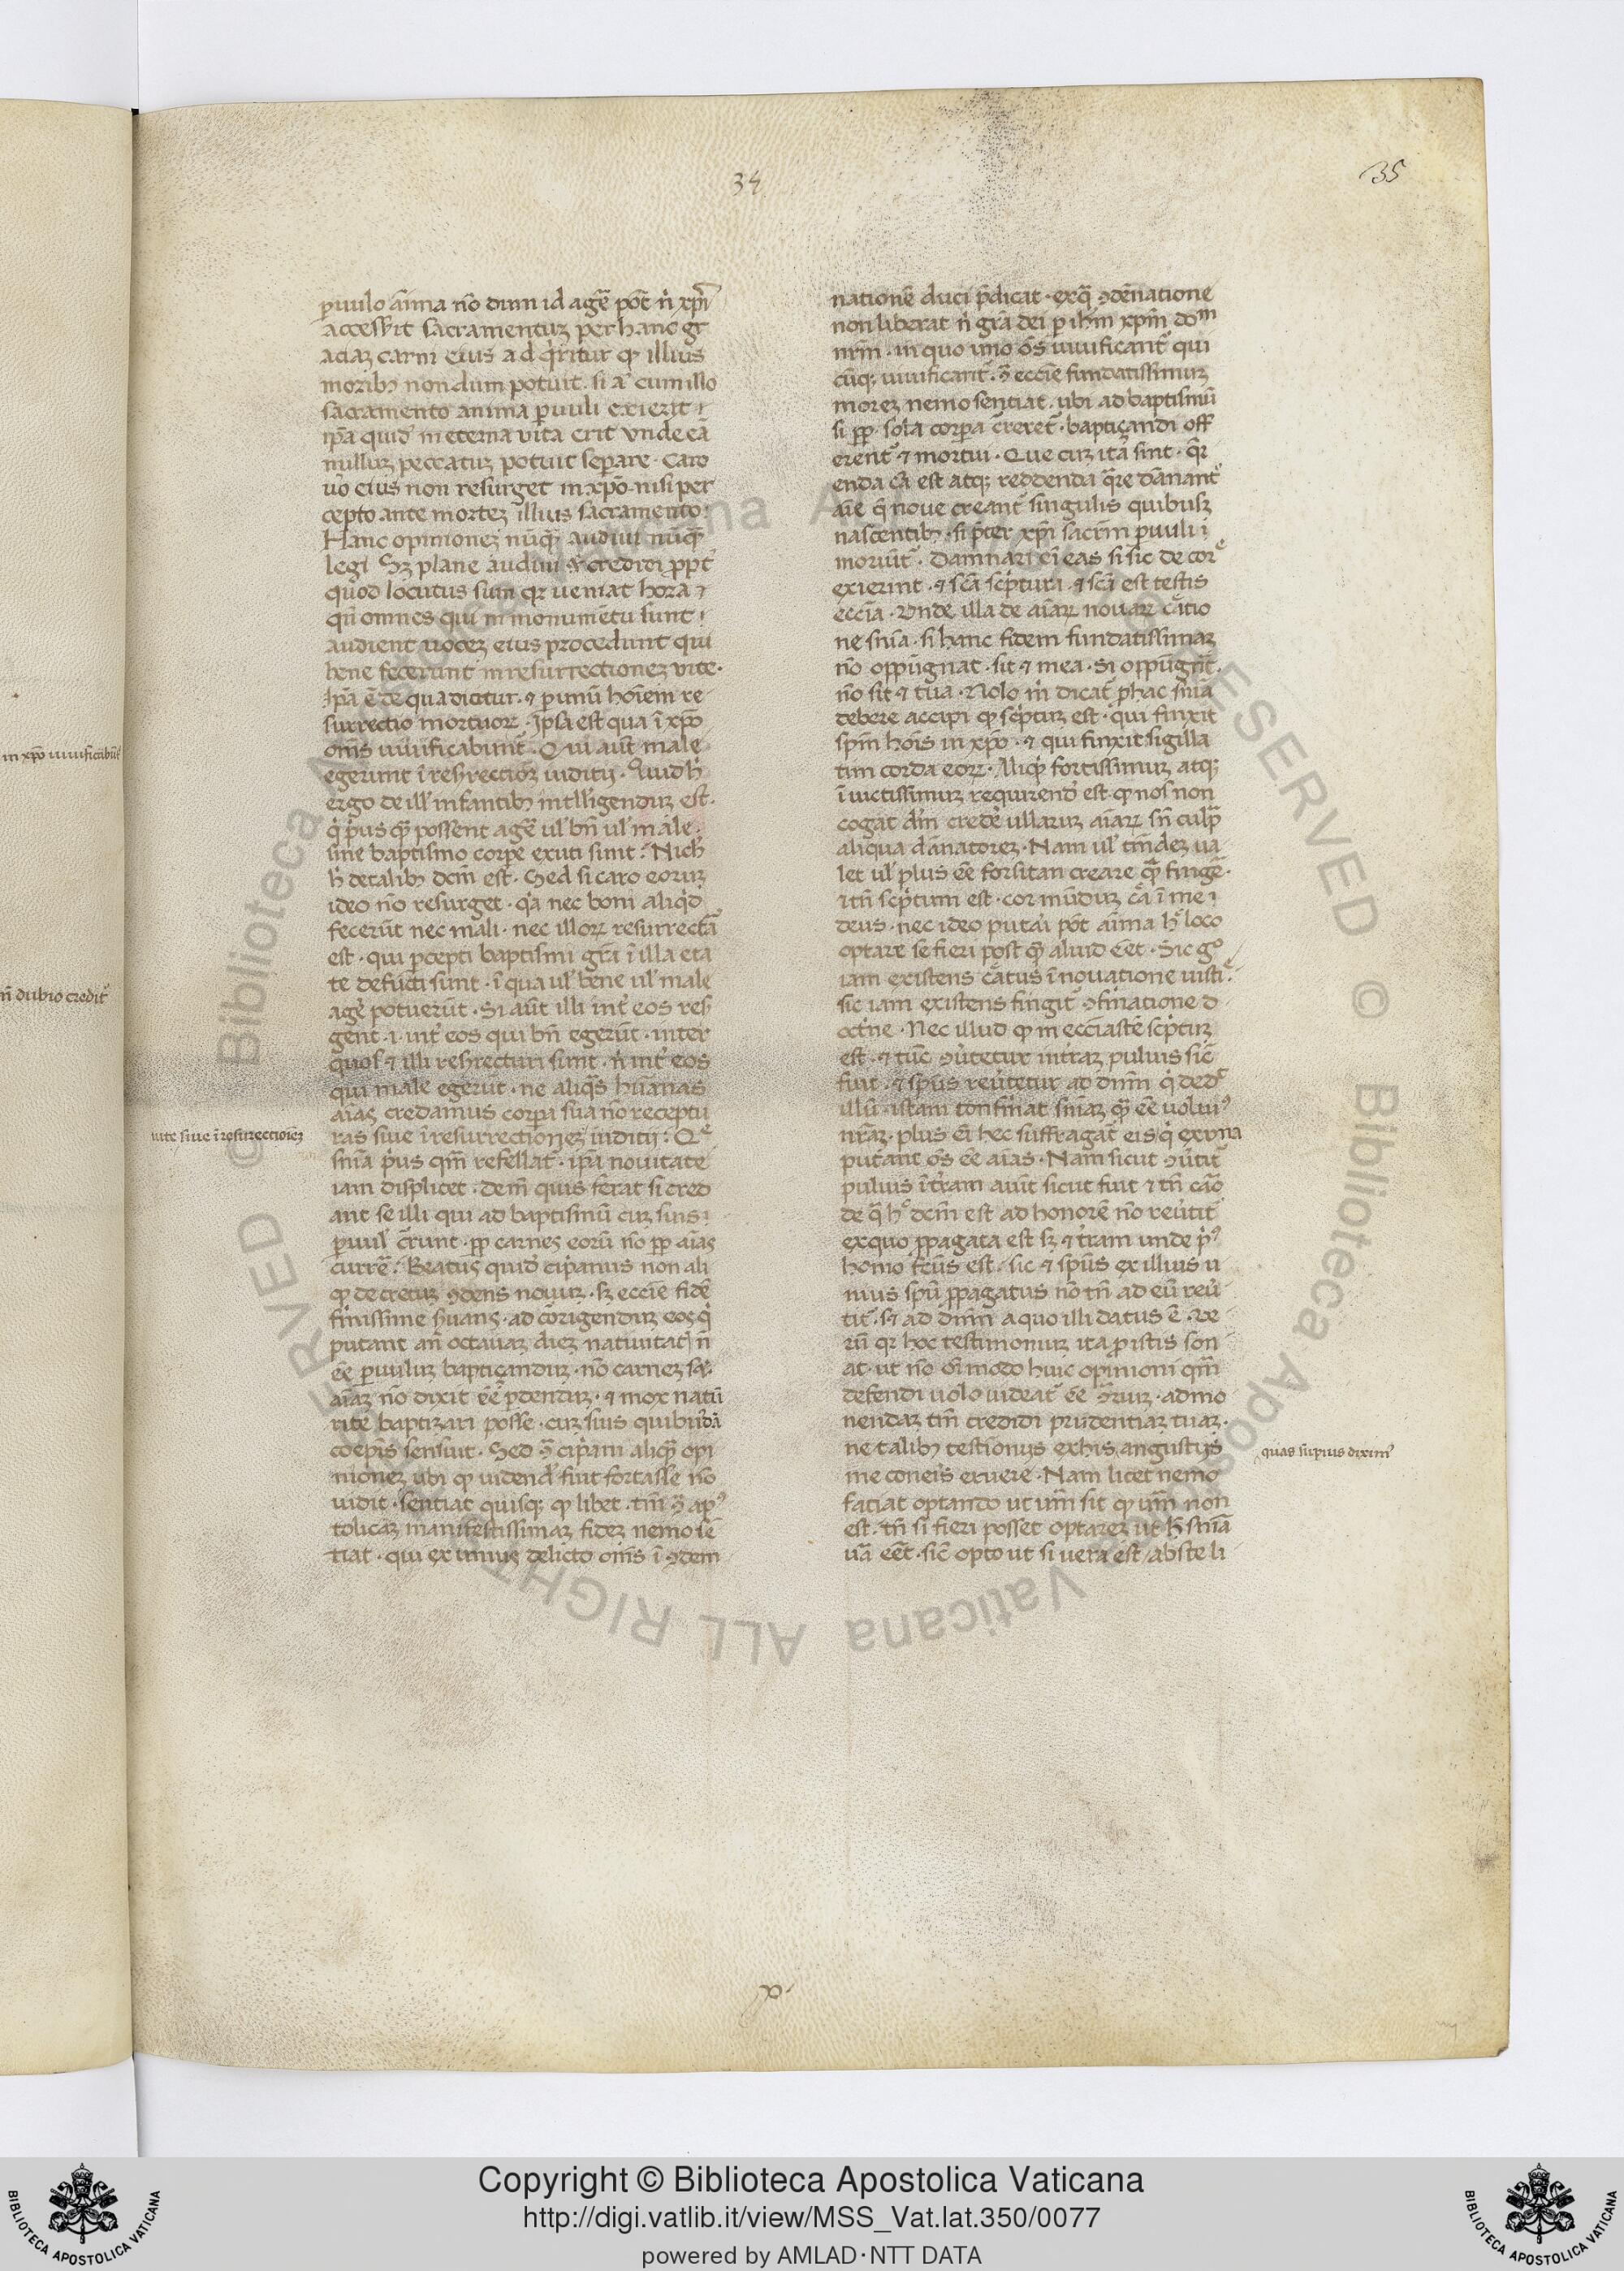 34
35
ꝑuulo aīma nō dum id agẽ pōt n̉ xp̄i
accesẜit sacramentuꝫ per hanc gr̄
aciaꝫ carni eius adq̉ritur qꝫ illius
moribꝫ nondum potuit. si aͣ cum illo
sacramento anima ꝑuuli exierit ⁊
ip̄a quid' in eterna uita erit vnde eā
nulluꝫ peccatuꝫ potuit seꝑare · caro
uͦo eius non resurget in xp̄o nisi per
cepto ante morteꝫ illius sacramento:
Hanc opinioneꝫ nūqꝫ audiui nūqꝫ
legi Sꝫ plane audiui ⁊ credidi ꝓpt̉
quod locutus sum qꝛ ueniat hora ⁊
qn̄ omnes qui in monumētis sunt ⁊
audient uoceꝫ eius procedunt qui
bene fecerunt in resurrectioneꝫ vite ·
Ip̄a ē de qua dicitur · ⁊ ꝑ unū hoīem re
surrectio mortuoꝝ · Ipsa est qua ī xp̄o
om̄s uiuificabunt̉ · Qui aut̄ male
egerunt ī resr̉rectioꝫ iuditij · Quid h̉
ergo de ill' infantibꝫ intelligenduꝫ est ·
q̉ p̉us qꝫ possent agẽ ul' bn̄ ul' male ·
sine baptismo corꝑe exuti sunt: Nich'
h̉ de talibꝫ dcm̄ est · Sed si caro eoruꝫ
ideo nō resurget · q̉a nec boni aliq̉d
fecerūt nec mali · nec illoꝝ resurrectā
est · qui ꝑcepti baptismi gr̄a ī illa eta
te defūcti sunt · ī qua ul' bene ul' male
agẽ potuerūt · Si aūt illi int̉ eos res̉
gent · i · int̉ eos qui bn̄ egerūt · inter
quos ⁊ illi resr̉recturi sunt · n̉ int̉ eos
qui male egerūt · ne aliq̉s humanas
aīas credamus corꝑa sua nō receptu
ras siue ī resurrectioneꝫ iuditij: Qͤ
sn̄ia p̉us qm̄ refellat̉ · ip̄a nouitate
iam displicet · dem̄ quis ferat si cred
ant se illi qui ad baptismū cuꝫ suis ⁊
ꝑuul' c̄runt · ꝓp carnes eorū nō ꝓp aīas
currẽ: Beatus quid' ciprianus non ali
qꝫ decretuꝫ ꝯdens nouuꝫ · sꝫ ecc̄ie fidē
firmissime ẜuans · ad corigenduꝫ eos q̉
putant an̄ octauaꝫ dieꝫ natiuitatꝭ n̄
eē ꝑuuluꝫ baptiçanduꝫ · nō carneꝫ sꝫ
aīaꝫ nō dixit eē ꝑdenduꝫ · ⁊ mox natū
rite baptizari posse · cuꝫ suis quibusdā
coep̄is sensuit · Sed ꝯ̄ cip̉ani aliqꝫ opi
nioneꝫ ubi qꝫ uidend' fuit fortasse nō
uidit · sentiat quisqꝫ qꝫ libet · tm̄ ꝯ̄ apꝰ
tolicaꝫ manifestissimaꝫ fideꝫ nemo sē
tiat · qui ex unius delicto om̄s ī ꝯdem
uite siue ī resurrectioneꝫ
nationē duci p̄dicat · ex q̄ ꝯdēnatione
non liberat n̉ gr̄a dei ꝑ ih̄m xp̄m doᵐ
nr̄m · in quo uno ōs uiuificant̉ qui
cūqꝫ uiuificant̉ · ꝯ̄ ecc̄ie fundatissimuꝫ
moreꝫ nemo sentiat · ubi ad baptismū
si ꝓp · sola corꝑa c̄reret̉ · baptiçandi off
erent̉ ⁊ mortui · Que cuꝫ ita sint · q̄r
enda cā est atqꝫ reddenda q̄re dānant̉
aīe q̄ noue creant̉ singulis quibusꝫ
nascentibꝫ · si p̄ter xp̄i sacrm̄ ꝑuuli ⁊
moriūt̉ · Damnari ei eas si sic de corͤ
exierint · ⁊ sc̄a sc̉ptura · ⁊ sc̄a est testis
ecc̄ia · Unde illa de aīaꝝ nouaꝝ c̉itio
ne sn̄ia · si hanc fidem fundatissimaꝫ
nō oppugnat · sit ⁊ mea · Si oppugnat ·
nō sit ⁊ tua · Nolo m̉ dicat̉ ꝑ hac sn̄ia
debere accipi qꝫ sc̉ptuꝫ est · qui finxit
sp̄m hoīs in xp̄o · ⁊ qui finxit sigilla
tim corda eoꝝ · Aliqꝫ fortissimuꝫ atqꝫ
īuictissimuꝫ requirend' est · qꝫ nos non
cogat dm̄ credẽ ullaruꝫ aīaꝝ sn̄ culpa
aliqua dānatoreꝫ · Nam ul' tm̄deꝫ ua
let ul' plus eē forsitan creare qꝫ fingẽ ·
⁊ tn̄ sc̉ptum est · cor mūduꝫ c̉a ī me ⁊
deus · nec ideo putari pōt aīma hͦ loco
optare se fieri post qꝫ aliud eēt · Sic gͦ
iam existens c̉atus ī nouatione iustiͤ ·
sic iam existens fingit̉ ꝯfirmatione d
oct̉ne · Nec illud qꝫ in ecc̄iaste sc̉ptuꝫ
est · ⁊ tūc ꝯủtetur in tr̄aꝫ puluis sic̄
fuit · ⁊ sp̄us reủtetur ad dnm̄ q̉ dedͭ
illū · istam confirmat sn̄iaꝫ qꝫ eē uolumꝰ
nr̄aꝫ · plus ei hec suffragat̉ eis q̉ ex una
putant ōs eē aīas · Nam sicut ꝯủtit̉
puluis ī tr̄am aiunt sicut fuit ⁊ tn̄ caͦo
de q̄ hͦ dcm̄ est ad honorē nō reủtit̉
ex quo ꝓpagata est sꝫ ⁊ tr̄am unde p̉ͥꝰ
homo fc̄us est · sic ⁊ sp̄us ex illius u
nius sp̄u ꝓpagatus nō tn̄ ad eū reủ
tit̉ · sꝫ ad dnm̄ a quo illi datus ē · Ve
rū qꝛ hoc testimoniuꝫ ita ꝑ istis son
at · ut nō oī modo huic opinioni qm̄
defendi uolo uideat̉ eē ꝯ̄riuꝫ · admo
nendaꝫ tm̄ credidi prudentiaꝫ tuaꝫ ·
ne talibꝫ testioniis ex his angustijs
me coneris eruere · Nam licet nemo
faciat optando ut um̄ sit qꝫ um̄ non
est · tn̄ si fieri posset optareꝫ ut h̄ sn̄ia
uā eēt · sic̄ opto ut si uera est abs te li
quas suꝑius diximꝰ
in xp̄o uiuificabūt̉
n̄ dubio credit̉
Copyright © Biblioteca Apostolica Vaticana
http://digi.vatlib.it/view/MSS_Vat.lat.350/0077
powered by AMLAD·NTT DATA
BIBLIOTECA APOSTOLICA VATICANA
BIBLIOTECA APOSTOLICA VATICANA